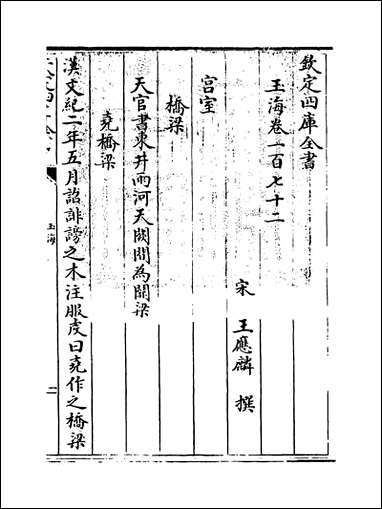 欽定四庫全書
玉海卷一百七十二
宋 王應麟 撰
宮室
橋梁
天官書東井兩河天闕間為關梁
堯橋梁
漢文紀二年五月詔誹謗之木注服虔曰堯作之橋梁
玉海